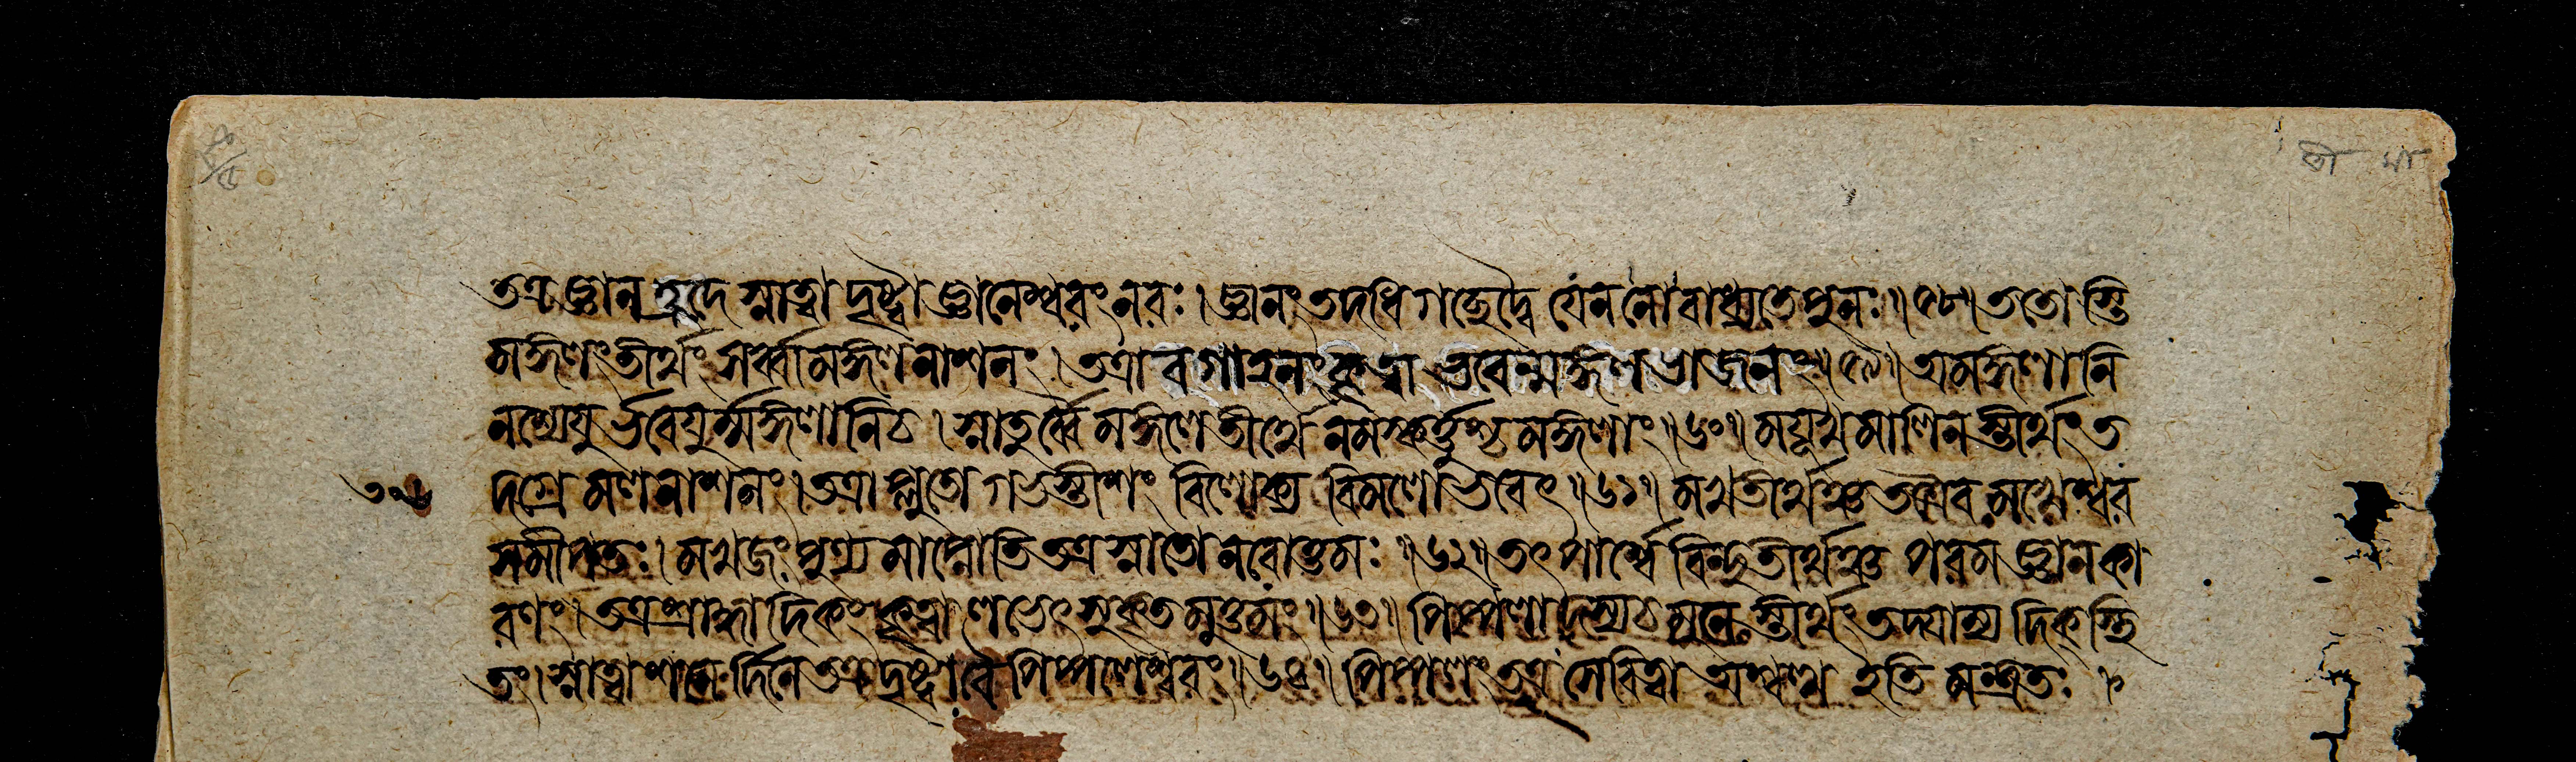 তত্র জ্ঞানহ্রদে স্নাত্বা দৃষ্ট্বা জ্ঞানেশ্বরং নরঃ। জ্ঞানং তদধিগচ্ছেদ্বৈ যেন নো বাধ্যতে পুনঃ॥৫৮॥ ততোস্তি
মঙ্গলং তীর্থং সর্ব্বামঙ্গলনাশনং। তত্রাবগাহনং কৃত্বা ভবেন্মঙ্গলভাজনং॥৫৯॥ অমঙ্গলানি
নশ্যেয়ুর্ভবেয়ুর্ম্মঙ্গলানি চ। স্নাতুর্ব্বৈ মঙ্গলে তীর্থে নমস্কর্ত্তুশ্চ মঙ্গলাং॥৬০॥ ময়ূখমালিনস্তীর্থং ত
দগ্রে মলনাশনং। তত্রাপ্লুতো গভস্তীশং বিলোক্য বিমলো ভবেৎ॥৬১॥ মখতীর্থঞ্চ তত্রৈব মখেশ্বর
সমীপতঃ। মখজং পুণ্যমাপ্নোতি তত্র স্নাতো নরোত্তমঃ॥৬২॥ তৎপার্শ্বে বিন্দুতীর্থঞ্চ পরমজ্ঞানকা
রণং। তত্র শ্রাদ্ধাদিকং কৃত্বা লভেৎ সুকৃতমুত্তমং॥৬৩॥ পিপ্পলাদস্য চ মুনেস্তীর্থং তদ্যাম্যদিক্স্থি
তং। স্নাত্বা শনের্দিনে তত্র দৃষ্ট্বা বৈ পিপ্পলেশ্বরং॥৬৪॥ পিপ্পলং তত্র সেবিত্বা অশ্বত্থ ইতি মন্ত্রতঃ।